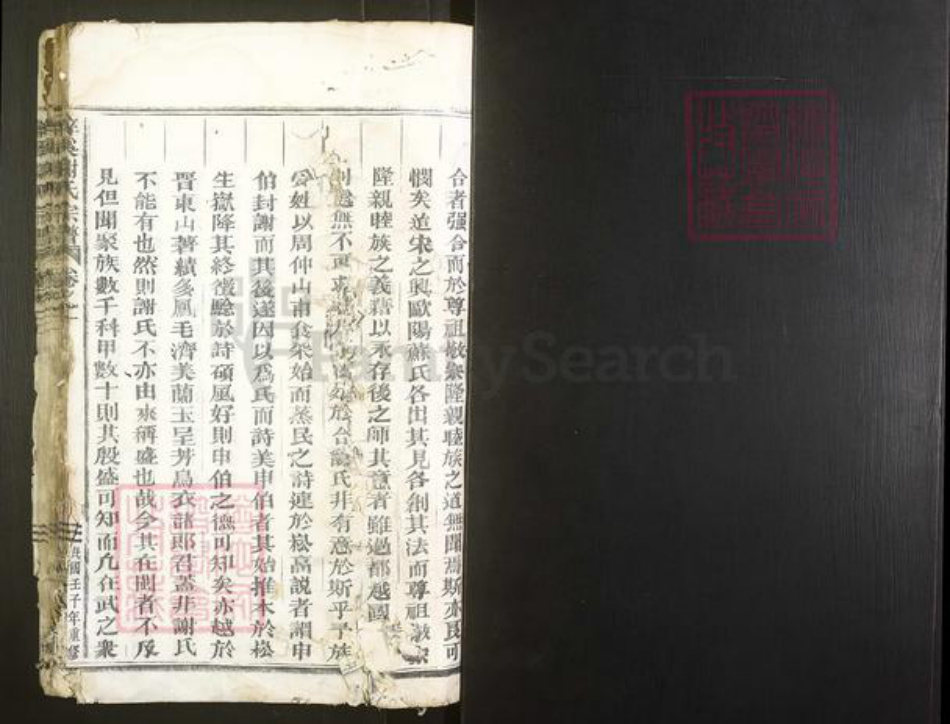 合者强合而於尊祖敬宗隆親睦族之道無聞焉斯亦良可
憫矣迨宋之興歐陽蘇氏各出其見各創其法而尊祖敬宗
隆親睦族之義藉以永存後之師其意者雖過都越國
則處無不可求於合謝氏非有意於斯乎予族
公姓以周仲山甫食采始而蒸民之詩連於崧高説者謂申
伯封謝而其後遂因以爲氏而詩美申伯者其始推本於崧
生嶽降其終徵驗於詩碩風好則申伯之德可知矣亦越於
晋東山著績多鳳毛濟美蘭玉呈芳烏衣諸郎君蓋非謝氏
不能有也然則謝氏不亦由來稱盛也哉今其在閩者不及
見但聞聚族數千科甲數十則其殷盛可知而凡在武之衆
謝氏宗譜 卷之一
民國壬子年重修
FamilySearch